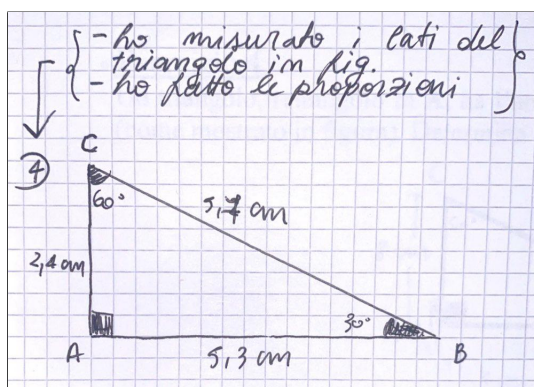 - ho misurato i lati del
triangolo in fig.
- ho fatto le proporzioni
4
C
60°
5,7 cm
2,4 cm
30°
A
5,3 cm
B